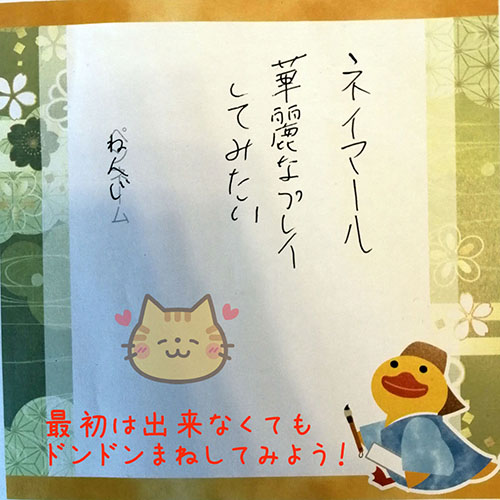 ネイマール
華麗なプレイ
してみたい
最初は出来なくても
ドンドンまねしてみよう！